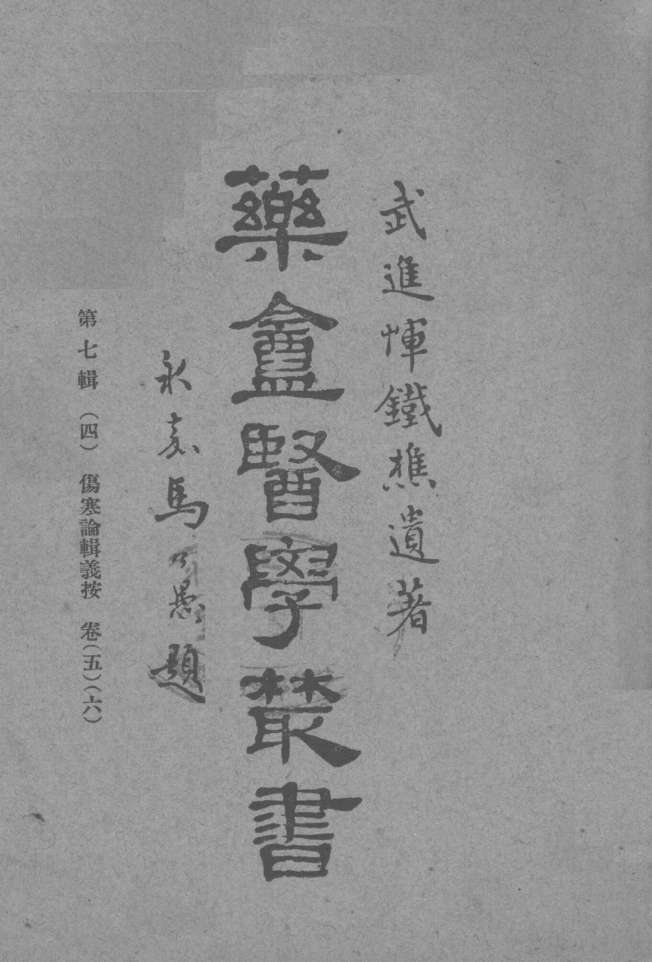 武進惲鐵樵遺著
藥盦醫學叢書
永嘉馬公愚題
第七輯（四）傷寒論輯義按 卷（五）（六）